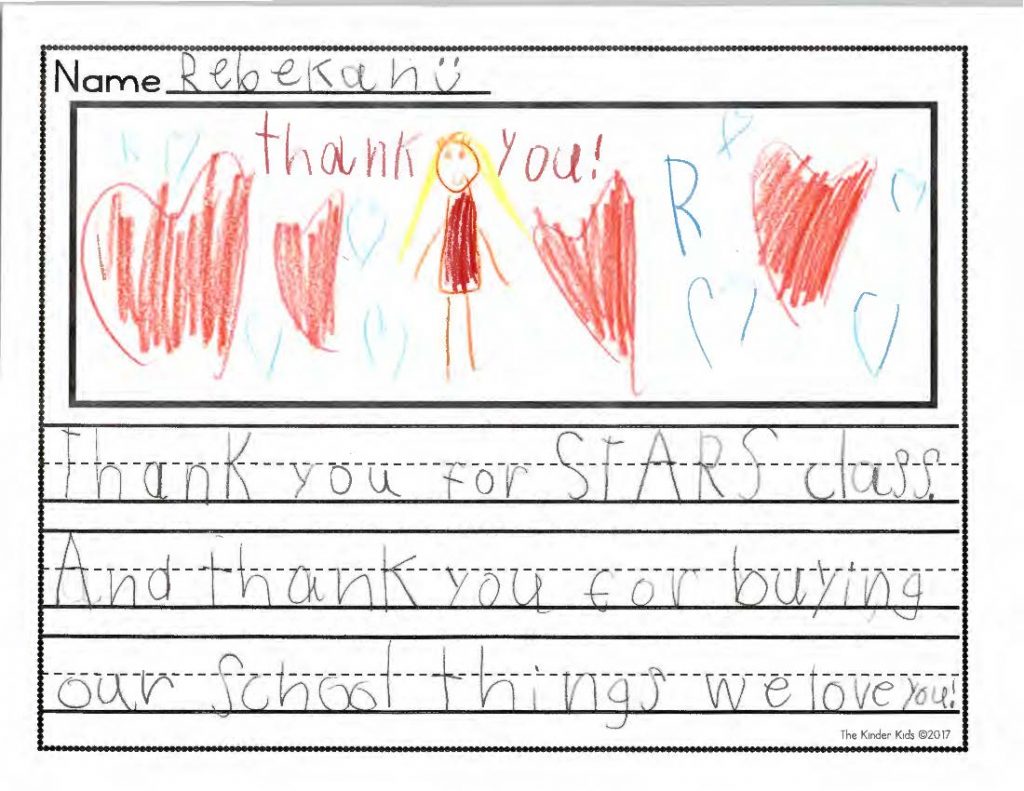 Name Rebekah
thank you!
R
Thank you for STARS class.
And thank you for buying
our School things we love you!
The Kinder Kids ©2017